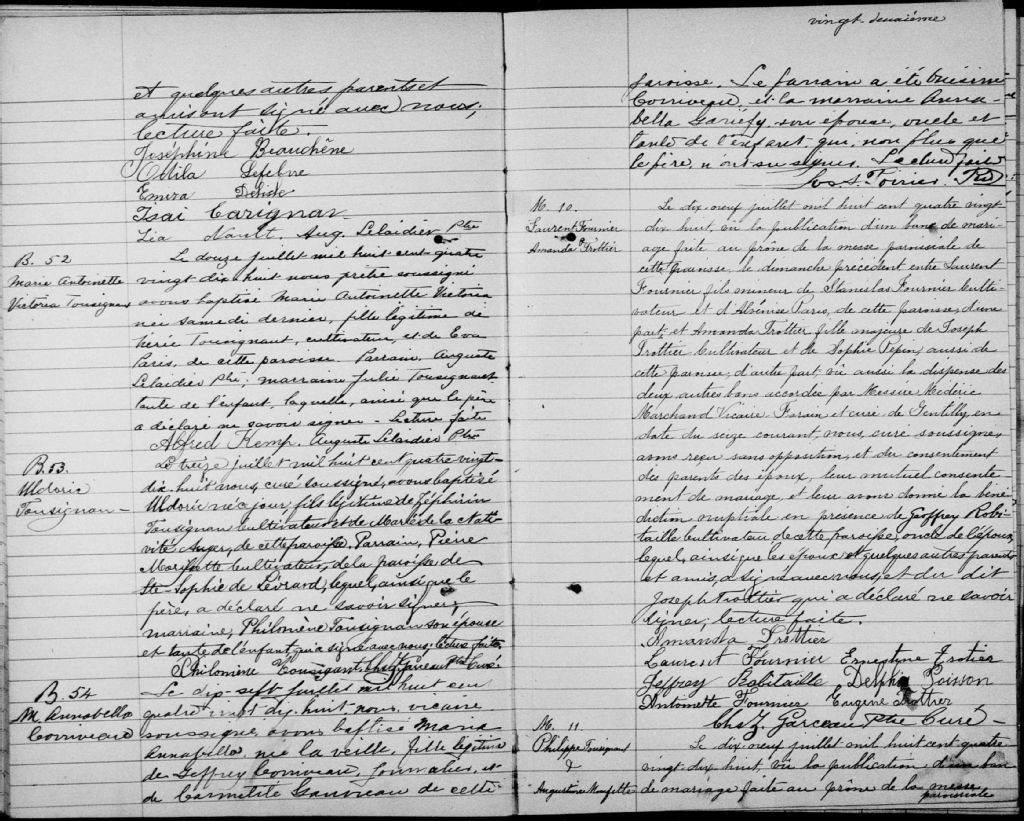 et quelques autres parents et
amis ont signé avec nous;
lecture faite.
Joséphine Beauchêne
Odila Lefebvre
Emira
Isaï Carignan
Léa Nault. Aug. Lelaidier Ptre
B. 52
Marie Antoinette
Victoria Tousignant
Le douze juillet mil huit cent quatre
vingt dix huit nous prêtre soussigné
avons baptisé Marie Antoinette Victoria
née samedi dernier, fille légitime de
Tousignant, cultivateur, et de Eva
Paris, de cette paroisse. Parrain, Auguste
Lelaidier Ptre; marraine Julie Tousignant
tante de l'enfant, laquelle, ainsi que le père
a déclaré ne savoir signer. Lecture faite
Alfred Kemp. Auguste Lelaidier Ptre
B. 53.
Uldoric
Tousignan
Le treize juillet mil huit cent quatre vingt-
dix-huit nous, curé soussigné, avons baptisé
Uldoric né ce jour, fils légitime de Zéphirin
Tousignan cultivateur et de Marie de la Nati-
vité Auger, de cette paroisse, Parrain, Pierre
cultivateur, de la paroisse de
Ste-Sophie de Lévrard, lequel, ainsi que le
père, a déclaré ne savoir signer;
marraine, Philomène Tousignan son épouse
et tante de l'enfant qui a signé avec nous, lecture faite.
Philomène Tousignant. Chs Z. Garceau Ptre Curé
B. 54
M. Annabella
Corriveau
Le dix-sept juillet mil huit cent
quatre vingt dix huit nous, vicaire
soussigné avons baptisé Maria
Annabella, née la veille, fille légitime
de Geffrey Corriveau, journalier, et
de Carmélite de cette
vingt-deuxième
paroisse. Le parrain a été
Corriveau, et la marraine Anna-
bella Gariépy son épouse, oncle et
tante de l'enfant qui, non plus que
le père, n'ont su signer. Lecture faite
Jos. A. Poirier. Ptre
M. 10.
Laurent Fournier
&
Amanda Trottier
Le dix-neuf juillet mil huit cent quatre vingt
dix huit, vu la publication d'un banc de mari-
age faite au prône de la messe paroissiale de
cette paroisse, le dimanche précédent entre Laurent
Fournier fils mineur de Stanislas Fournier Culti-
vateur et d'Arlémise Paris, de cette paroisse, d'une
part; et Amanda Trottier fille majeure de Joseph
Trottier Cultivateur et de Sophie Pepin, aussi de
cette paroisse, d'autre part; vu aussi la dispense des
deux autres bans accordée par Messire Médéric
Marchand Vicaire Forain et curé de Gentilly, en
date du seize courant, nous, curé soussigné,
avons reçu sans opposition, et du consentement
des parents des époux, leur mutuel consente-
ment de mariage, et leur avons donné la béné-
diction nuptiale en présence de Geoffrey Robi-
taille cultivateur de cette paroisse, oncle de l'époux,
lequel, ainsi que les époux et quelques autres parents
et amis, a signé avec nous, et du dit
Joseph Trottier qui a déclaré ne savoir
signer; lecture faite.
Amanda Trottier
Laurent Fournier Ernestine Trotier
Jeffrey Robitaille Delphis Poisson
Antoinette Fournier Eugène Trottier
Chs Z. Garceau Ptre Curé
M. 11.
Philippe Tousignant
&
Augustine Monfette
Le dix-neuf juillet mil huit cent quatre-
vingt-dix huit, vu la publication d'un ban
de mariage faite au prône de la messe
paroissiale